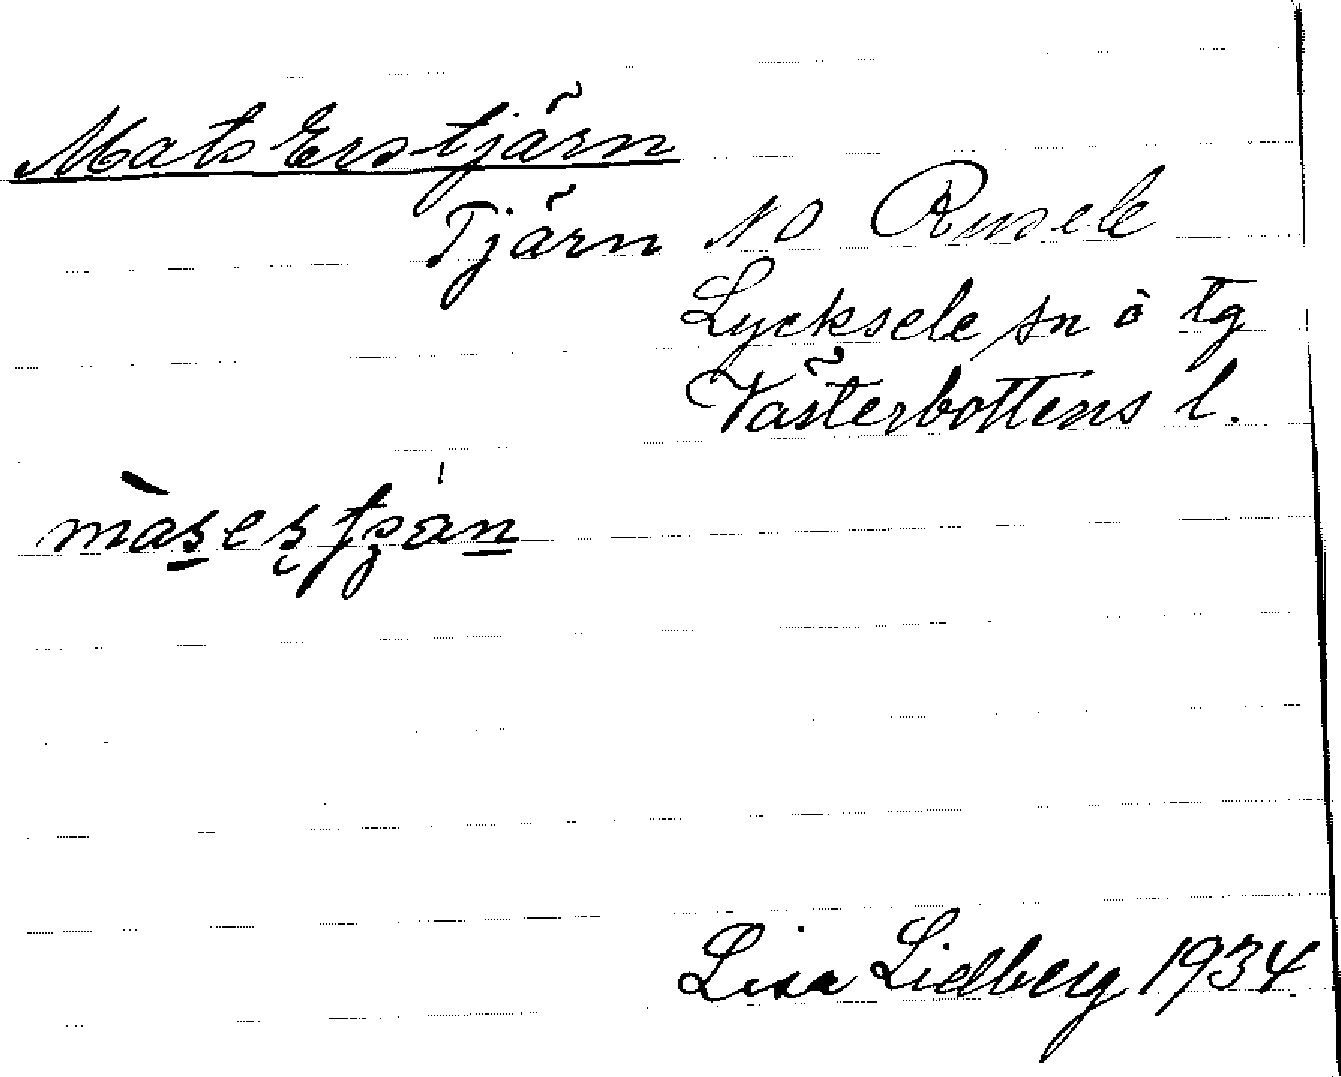 Mats Erstjärn
Tjärn NO Rusele
Lycksele sn o tg
Västerbottens l.
Lisa Lidberg 1934